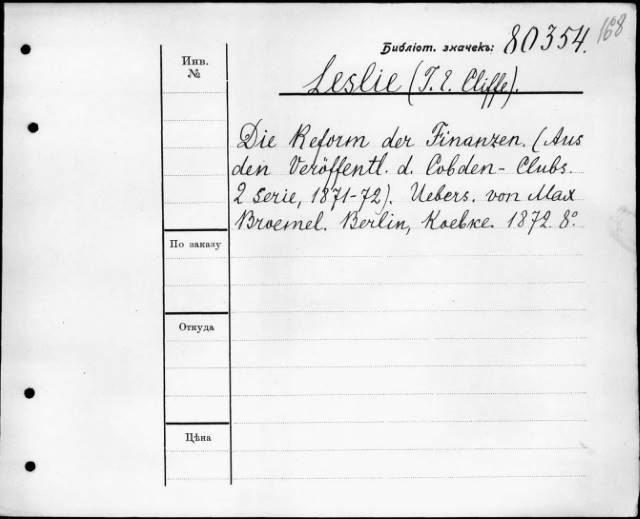 168
Библіот. значекъ: 80354.
Инв.
№
Leslie (T. E. Cliffe).
Die Reform der Finanzen. (Aus
den Veröffentl. d. Cobden-Clubs.
2 Serie, 1871-72). Uebers. von Max
Broemel. Berlin, Koebke. 1872. 8º.
По заказу
Откуда
Цѣна